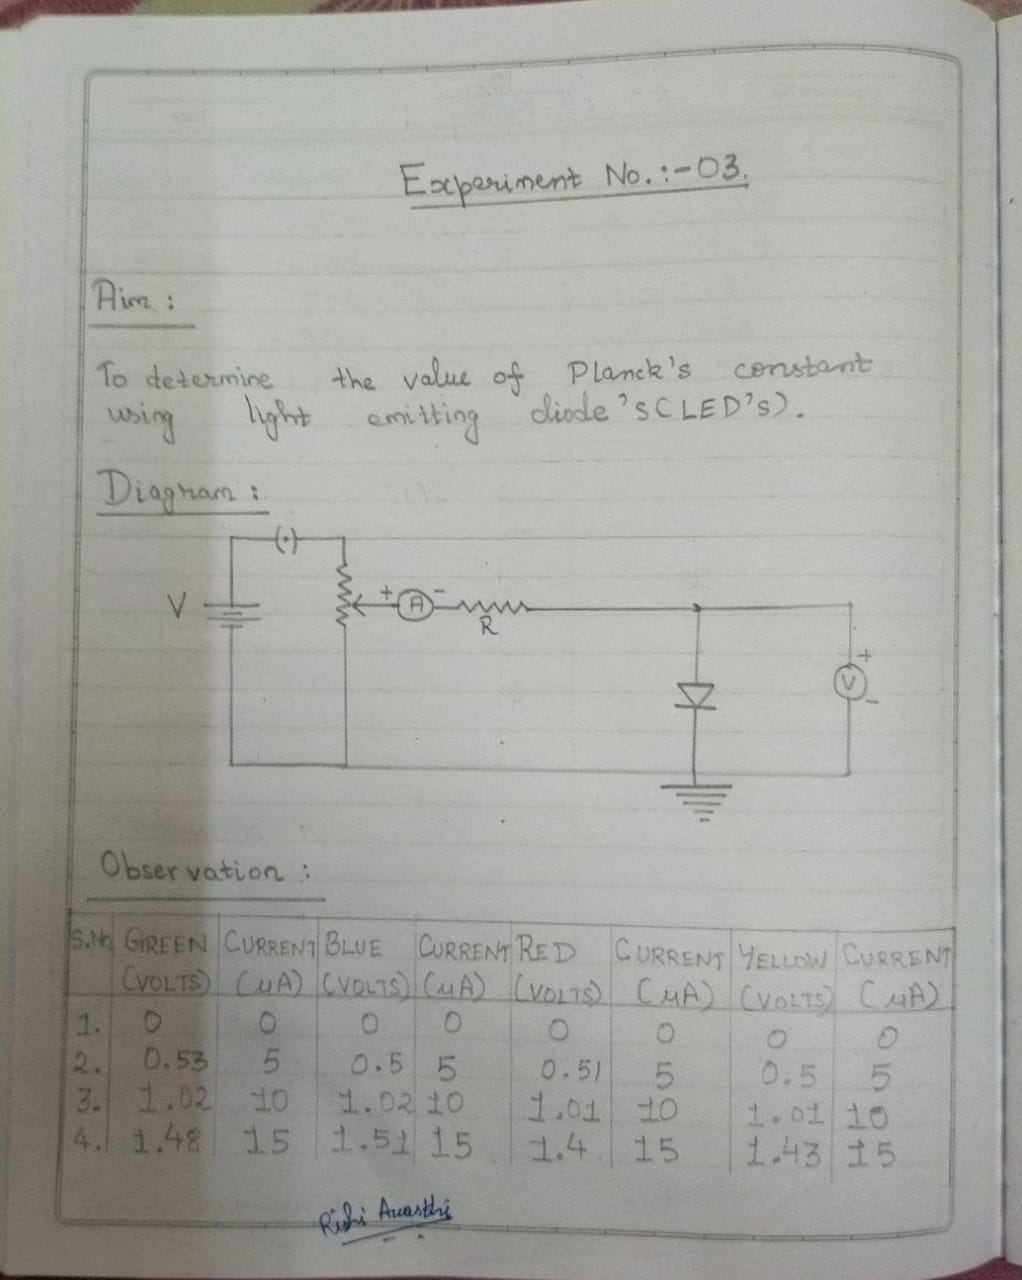 Experiment No.:-03.
Aim :
To determine the value of Planck's constant
using light emitting diode's (LED's).
Diagram :
V
+ A -
R
+
V
-
Observation :
S.No GREEN CURRENT BLUE CURRENT RED CURRENT YELLOW CURRENT
(VOLTS) (μA) (VOLTS) (μA) (VOLTS) (μA) (VOLTS) (μA)
1. 0 0 0 0 0 0 0 0
2. 0.53 5 0.5 5 0.51 5 0.5 5
3. 1.02 10 1.02 10 1.01 10 1.01 10
4. 1.48 15 1.51 15 1.4 15 1.43 15
Rishi Awasthi